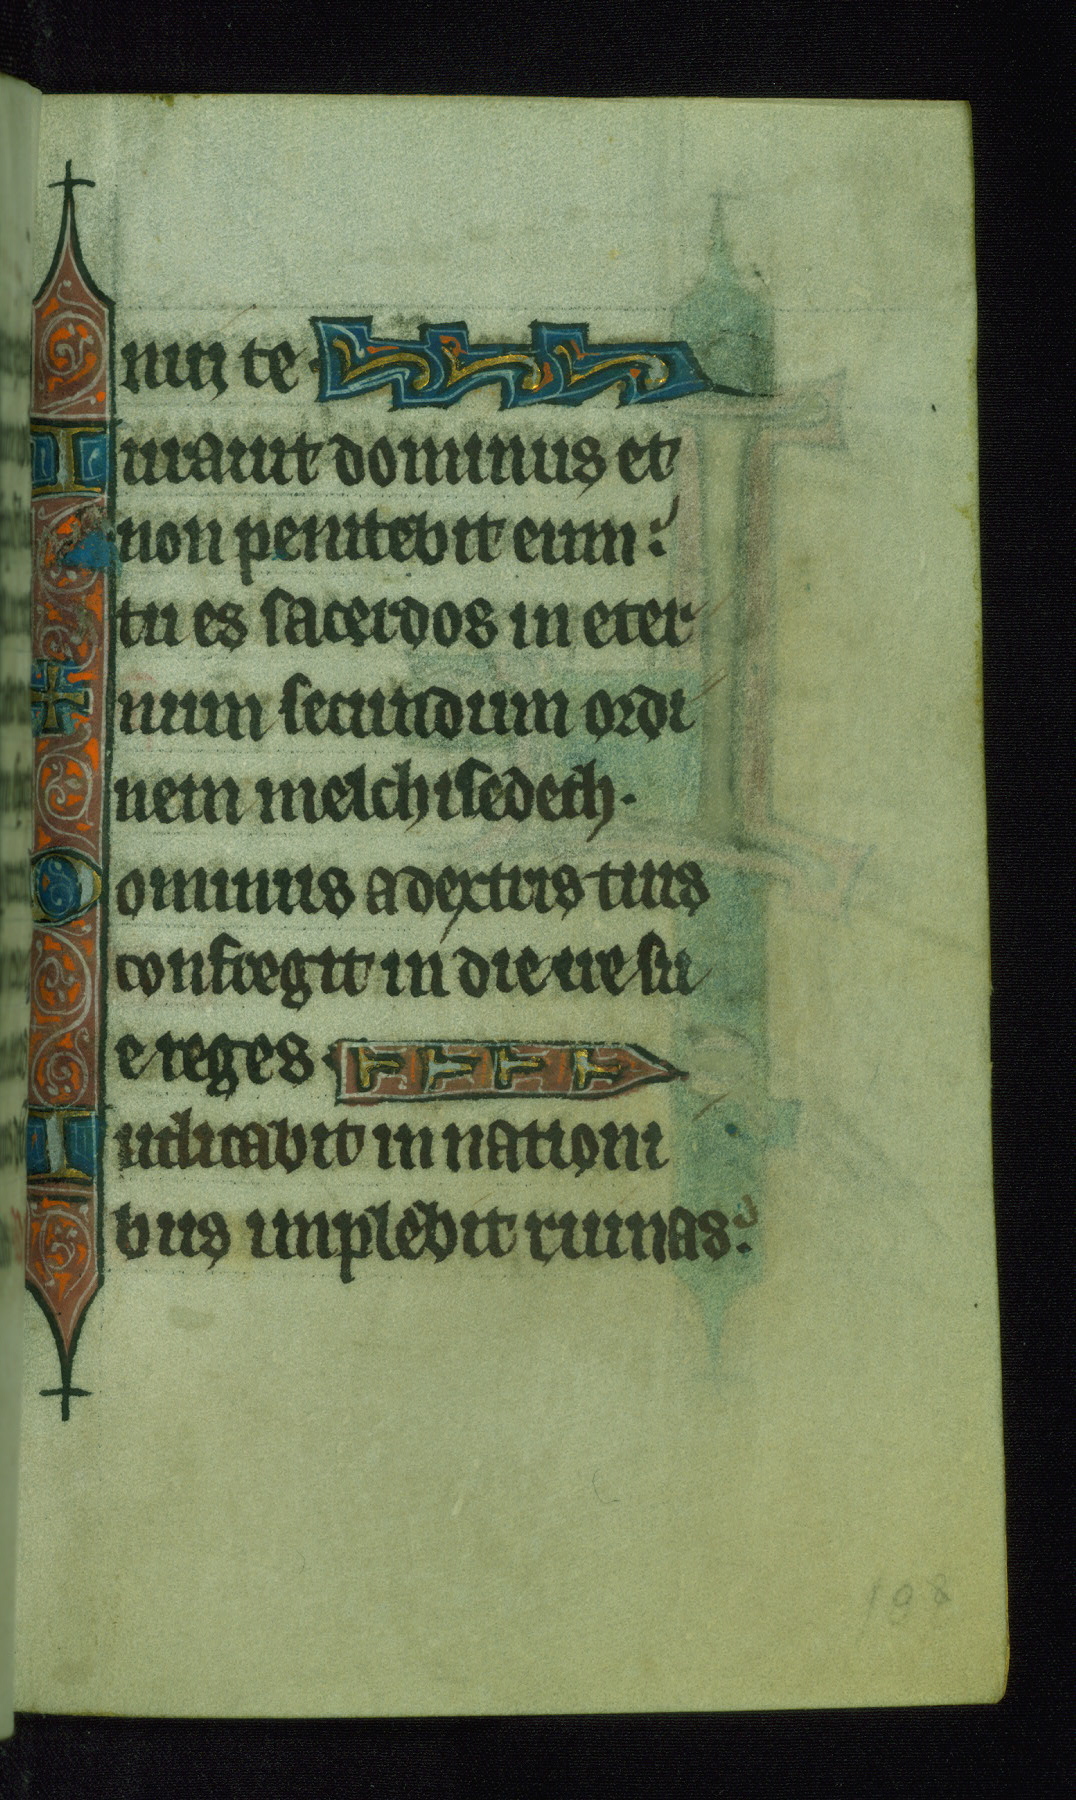 nui te
Iurauit dominus et
non penitebit eum:
tu es sacerdos in eter
num secundum ordi
nem melchisedech.
Dominus a dextris tuis
confregit in die ire su
e reges
Iudicabit in nationi
bus implebit ruinas:
198